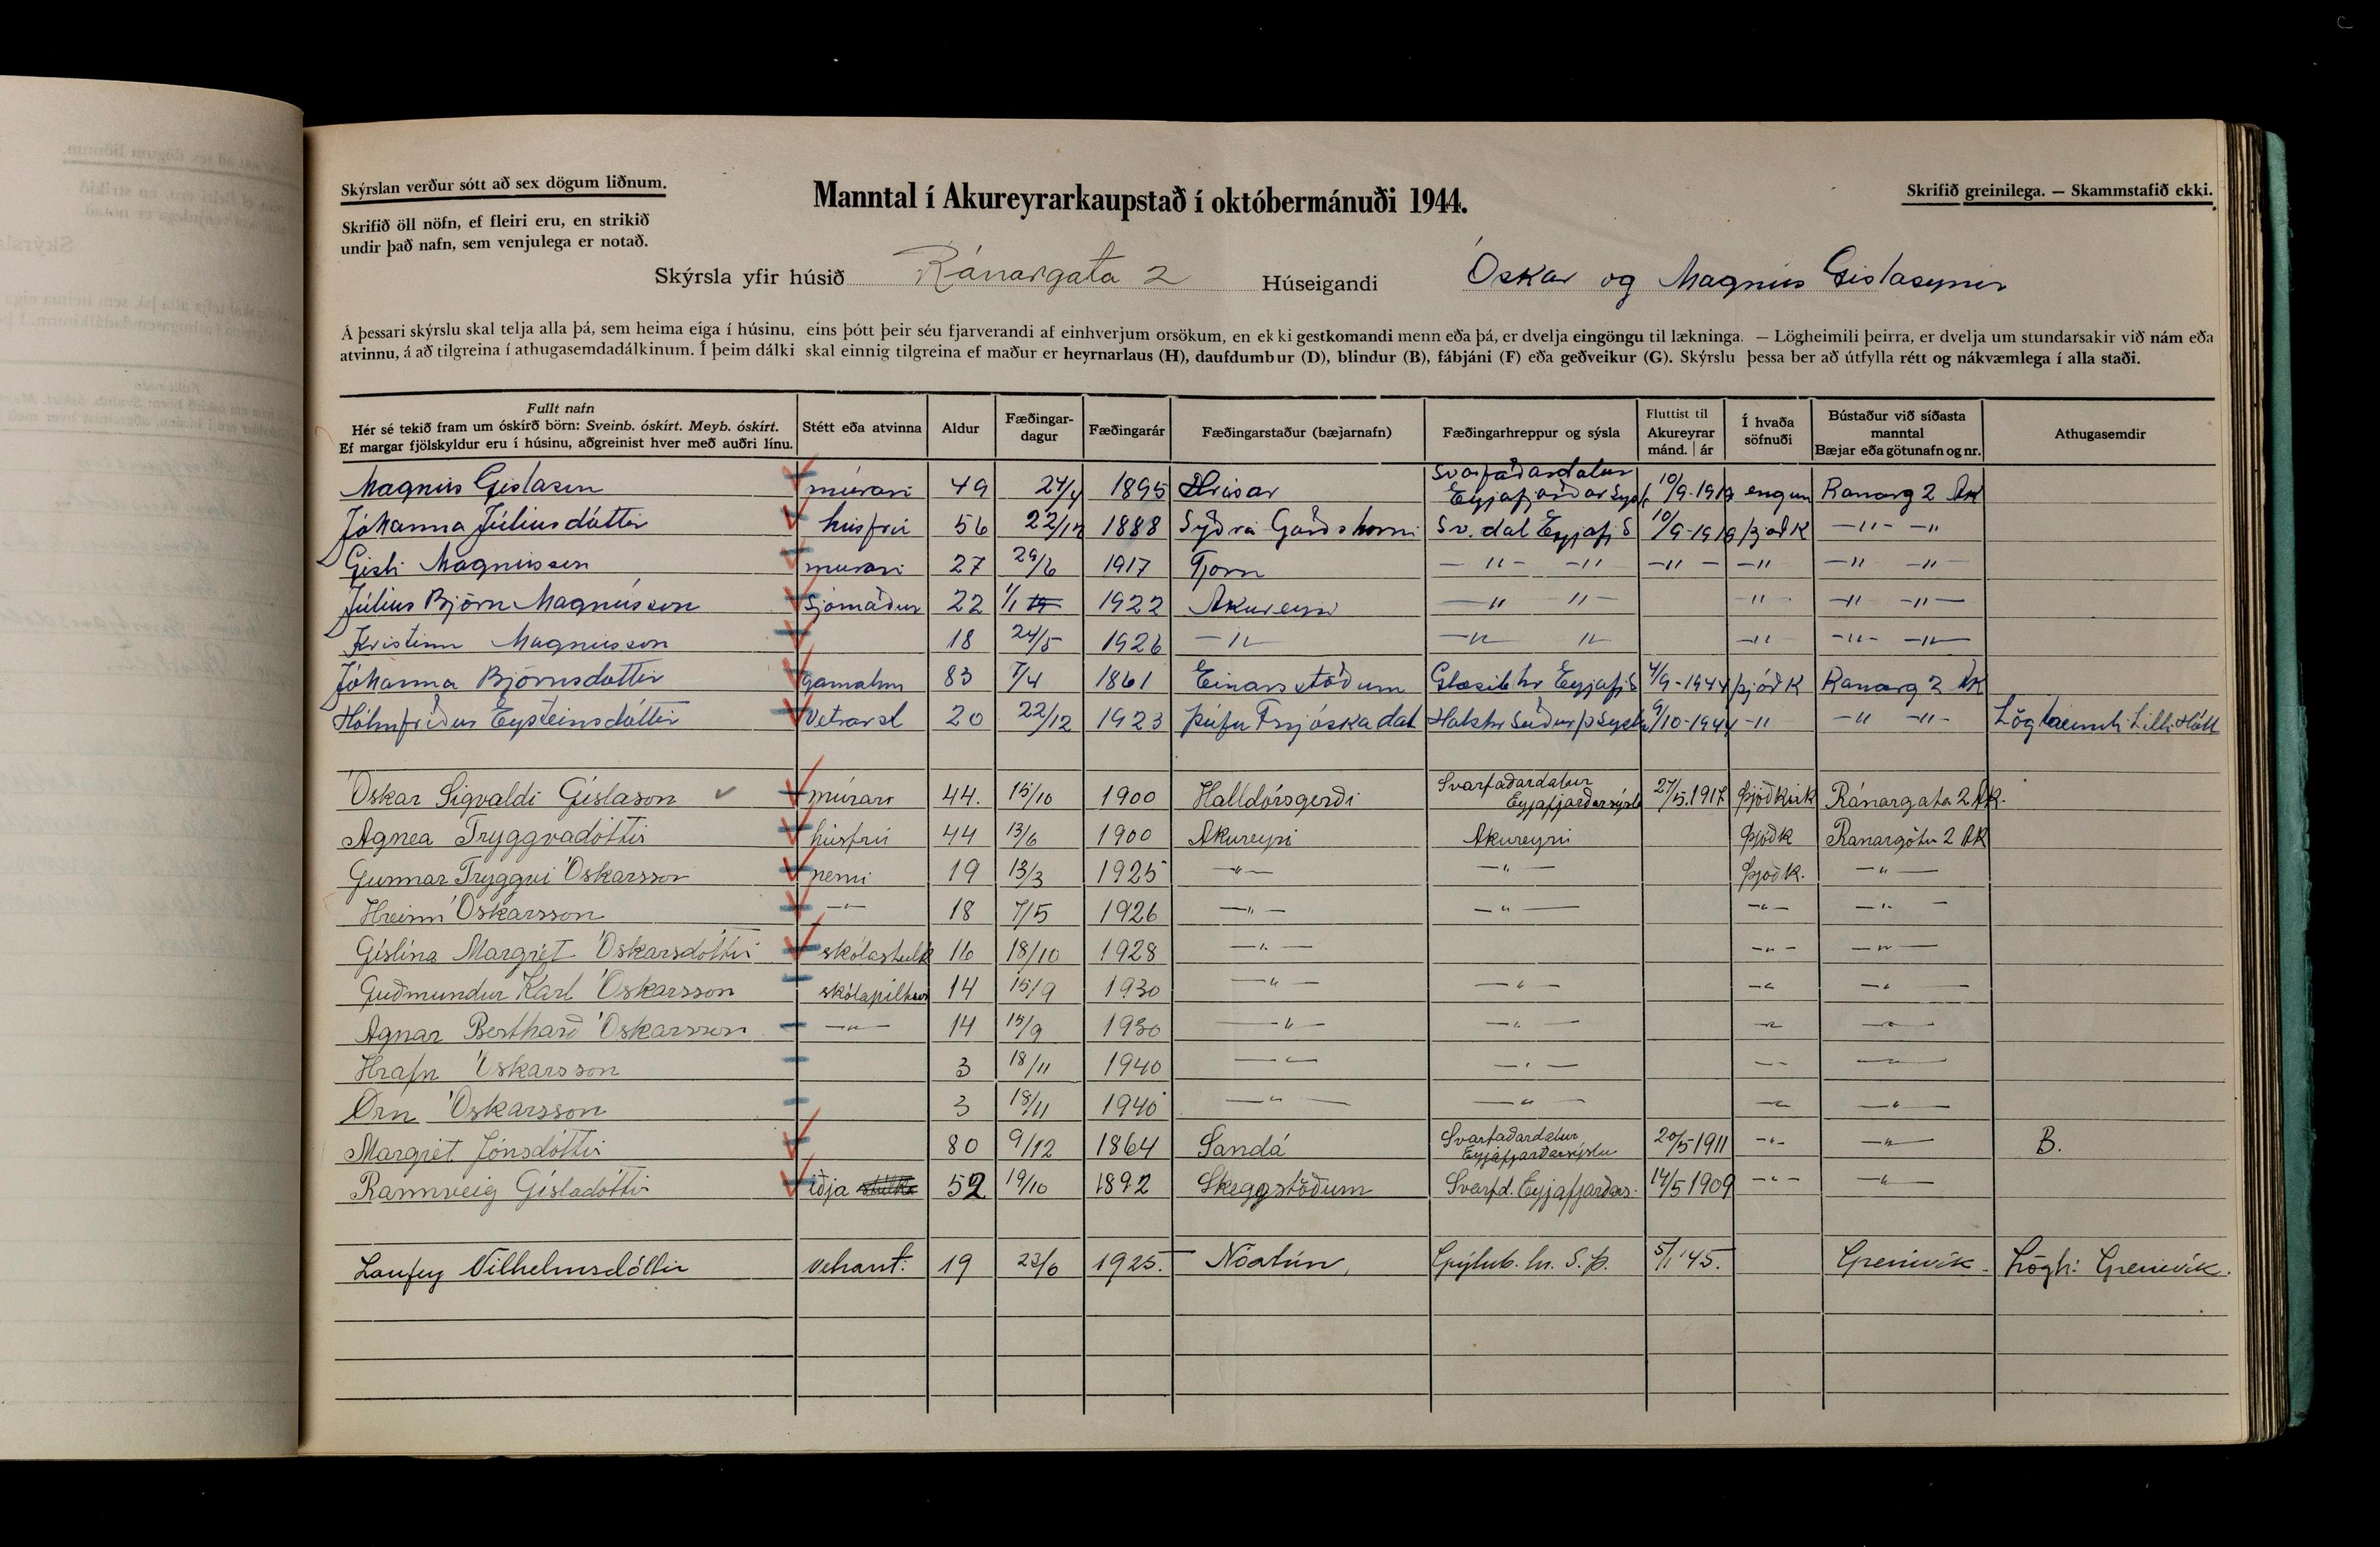 Skýrslan verður sótt að sex dögum liðnum.
Skrifið öll nöfn, ef fleiri eru, en strikið
undir það nafn, sem venjulega er notað.
Manntal í Akureyrarkaupstað í októbermánuði 1944.
Skrifið greinilega. — Skammstafið ekki.
Skýrsla yfir húsið Ránargata 2 Húseigandi Óskar og Magnús Gíslasynir
Á þessari skýrslu skal telja alla þá, sem heima eiga í húsinu, eins þótt þeir séu fjarverandi af einhverjum orsökum, en ekki gestkomandi menn eða þá, er dvelja eingöngu til lækninga. — Lögheimili þeirra, er dvelja um stundarsakir við nám eða
atvinnu, á að tilgreina í athugasemdadálkinum. Í þeim dálki skal einnig tilgreina ef maður er heyrnarlaus (H), daufdumbur (D), blindur (B), fábjáni (F) eða geðveikur (G). Skýrslu þessa ber að útfylla rétt og nákvæmlega í alla staði.
Fullt nafn
Hér sé tekið fram um óskírð börn: Sveinb. óskírt. Meyb. óskírt.
Ef margar fjölskyldur eru í húsinu, aðgreinist hver með auðri línu.
Stétt eða atvinna
Aldur
Fæðingar-
dagur
Fæðingarár
Fæðingarstaður (bæjarnafn)
Fæðingarhreppur og sýsla
Fluttist til
Akureyrar
mánd. | ár
Í hvaða
söfnuði
Bústaður við síðasta
manntal
Bæjar eða götunafn og nr.
Athugasemdir
Magnús Gíslason múrari 49 24/4 1895 Hrísar Svarfaðardalur Eyjafjarðarsýsl 10/9-1919 engum Ranarg 2 Ak
Jóhanna Júliusdóttir húsfrú 56 22/12 1888 Syðra Garðshorni Sv. dal Eyjafj S 10/9-1919 þjoðK —"— —"
Gisli Magnússon murari 27 29/6 1917 Tjorn —"— —"— —"— —" —" —"—
Július Björn Magnússon Sjómaður 22 1/1 1922 Akureyri —" "— —" —" —"—
Kristinn Magnússon 18 24/5 1926 —"— —" " —" —"— —"—
Jóhanna Björnsdóttir gamalm 83 7/4 1861 Einarsstöðum Glæsib hr Eyjafj S 4/9-1944 þjóðK Ranarg 2 AK
Hólmfríður Eysteinsdóttir Vetrarst 20 22/12 1923 Þúfu Fnjóskadal Halshr Suður þ Sysl 9/10-1944 —" —" —"—
Óskar Sigvaldi Gíslason múrari 44. 15/10 1900 Halldórsgerði Svarfaðardalur Eyjafjarðarsýslu 27/5.1917 Þjóðkirk Ránargata 2 Ak.
Agnea Tryggvadóttir húsfrú 44 13/6 1900 Akureyri Akureyri Þjóðk Ranargötu 2 AK
Gunnar Tryggvi Óskarsson nemi 19 13/3 1925 —"— —"— Þjóðk. —"—
Hreinn Óskarsson —"— 18 7/5 1926 —"— —"— —"— —"—
Gíslína Margrét Óskarsdóttir skólastulk 16 18/10 1928 —"— —"— —"—
Guðmundur Karl Óskarsson skólapiltur 14 15/9 1930 —"— —"— —"— —"—
Agnar Berthard Óskarsson —"— 14 15/9 1930 —"— —"— —"— —"—
Hrafn Óskarsson 3 18/11 1940 —"— —"— —"— —"—
Örn Óskarsson 3 18/11 1940 —"— —"— —"— —"—
Margrét Jónsdóttir 80 9/12 1864 Sandá Svarfaðardalur Eyjafjarðarsýslu 20/5 1911 —"— —"— B.
Rannveig Gísladóttir iðja 52 19/10 1892 Skeggstöðum Svarfd. Eyjafjarðars. 14/5 1909 —"— —"—
Laufey Vilhelmsdóttir 19 23/6 1925. Nóatún, Grýtub. hr. S. Þ. 5/1 '45. Grenivík. Lögh: Grenivík.